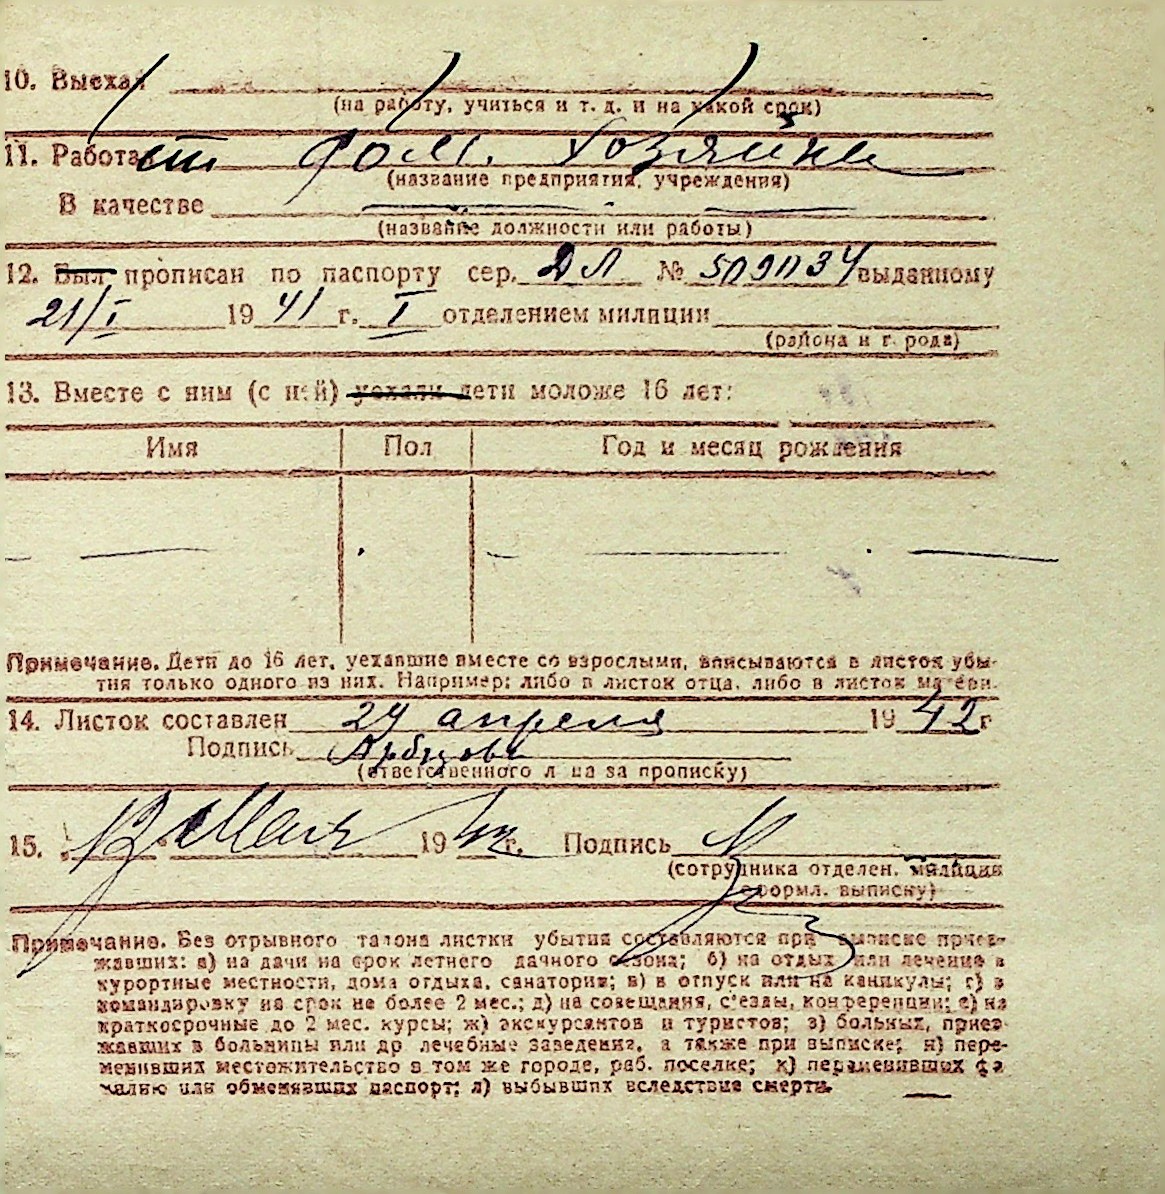 10. Выехал
(на работу, учиться и т. д. и на какой срок)
11. Работает дом. хозяйка
(название предприятия, учреждения)
В качестве
(название должности или работы)
12. Был прописан по паспорту сер. ДЛ № выданному
21/I 1941 г. I отделением милиции
(района и города)
13. Вместе с ним (с ней) уехали дети моложе 16 лет:
Имя Пол Год и месяц рождения
Примечание. Дети до 16 лет, уехавшие вместе со взрослыми, вписываются в листок убы-
тия только одного из них. Например: либо в листок отца, либо в листок матери.
14. Листок составлен 24 апреля 1942 г
Подпись
(ответственного лица за прописку)
15. 12 Мая 1942 г. Подпись
(сотрудника отделен. милиции
оформл. выписку)
Примечание. Без отрывного талона листки убытия составляются при выписке приез-
жавших: а) на дачи на срок летнего дачного сезона; б) на отдых или лечение в
курортные местности, дома отдыха, санатории; в) в отпуск или на каникулы; г) в
командировку на срок не более 2 мес.; д) на совещания, с'езды, конференции; е) на
краткосрочные до 2 мес. курсы; ж) экскурсантов и туристов; з) больных, приез-
жавших в больницы или др лечебные заведения, а также при выписке; и) пере-
менивших местожительство в том же городе, раб. поселке; к) переменивших фа
милию или обменявших паспорт; л) выбывших вследствие смерти.